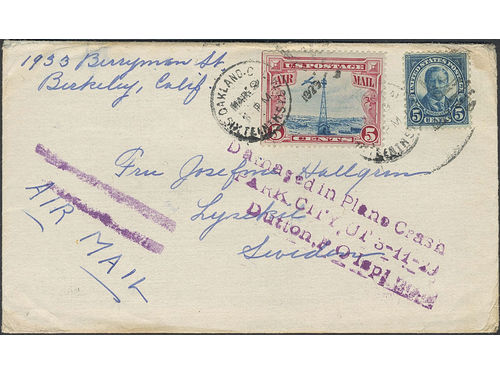 1933 Berryman St
Berkeley, Calif
OAKLAND, C
MAR 9
1929
SIXTEENTH ST
U.S. POSTAGE
AIR MAIL
5 CENTS 5
UNITED STATES POSTAGE
5 CENTS 5
Fru Josefine Hallgren
Lysekil
Sweden
AIR MAIL
Damaged in Plane Crash
PARK CITY, UT 3-11-29
Dutton, P.O. Insp